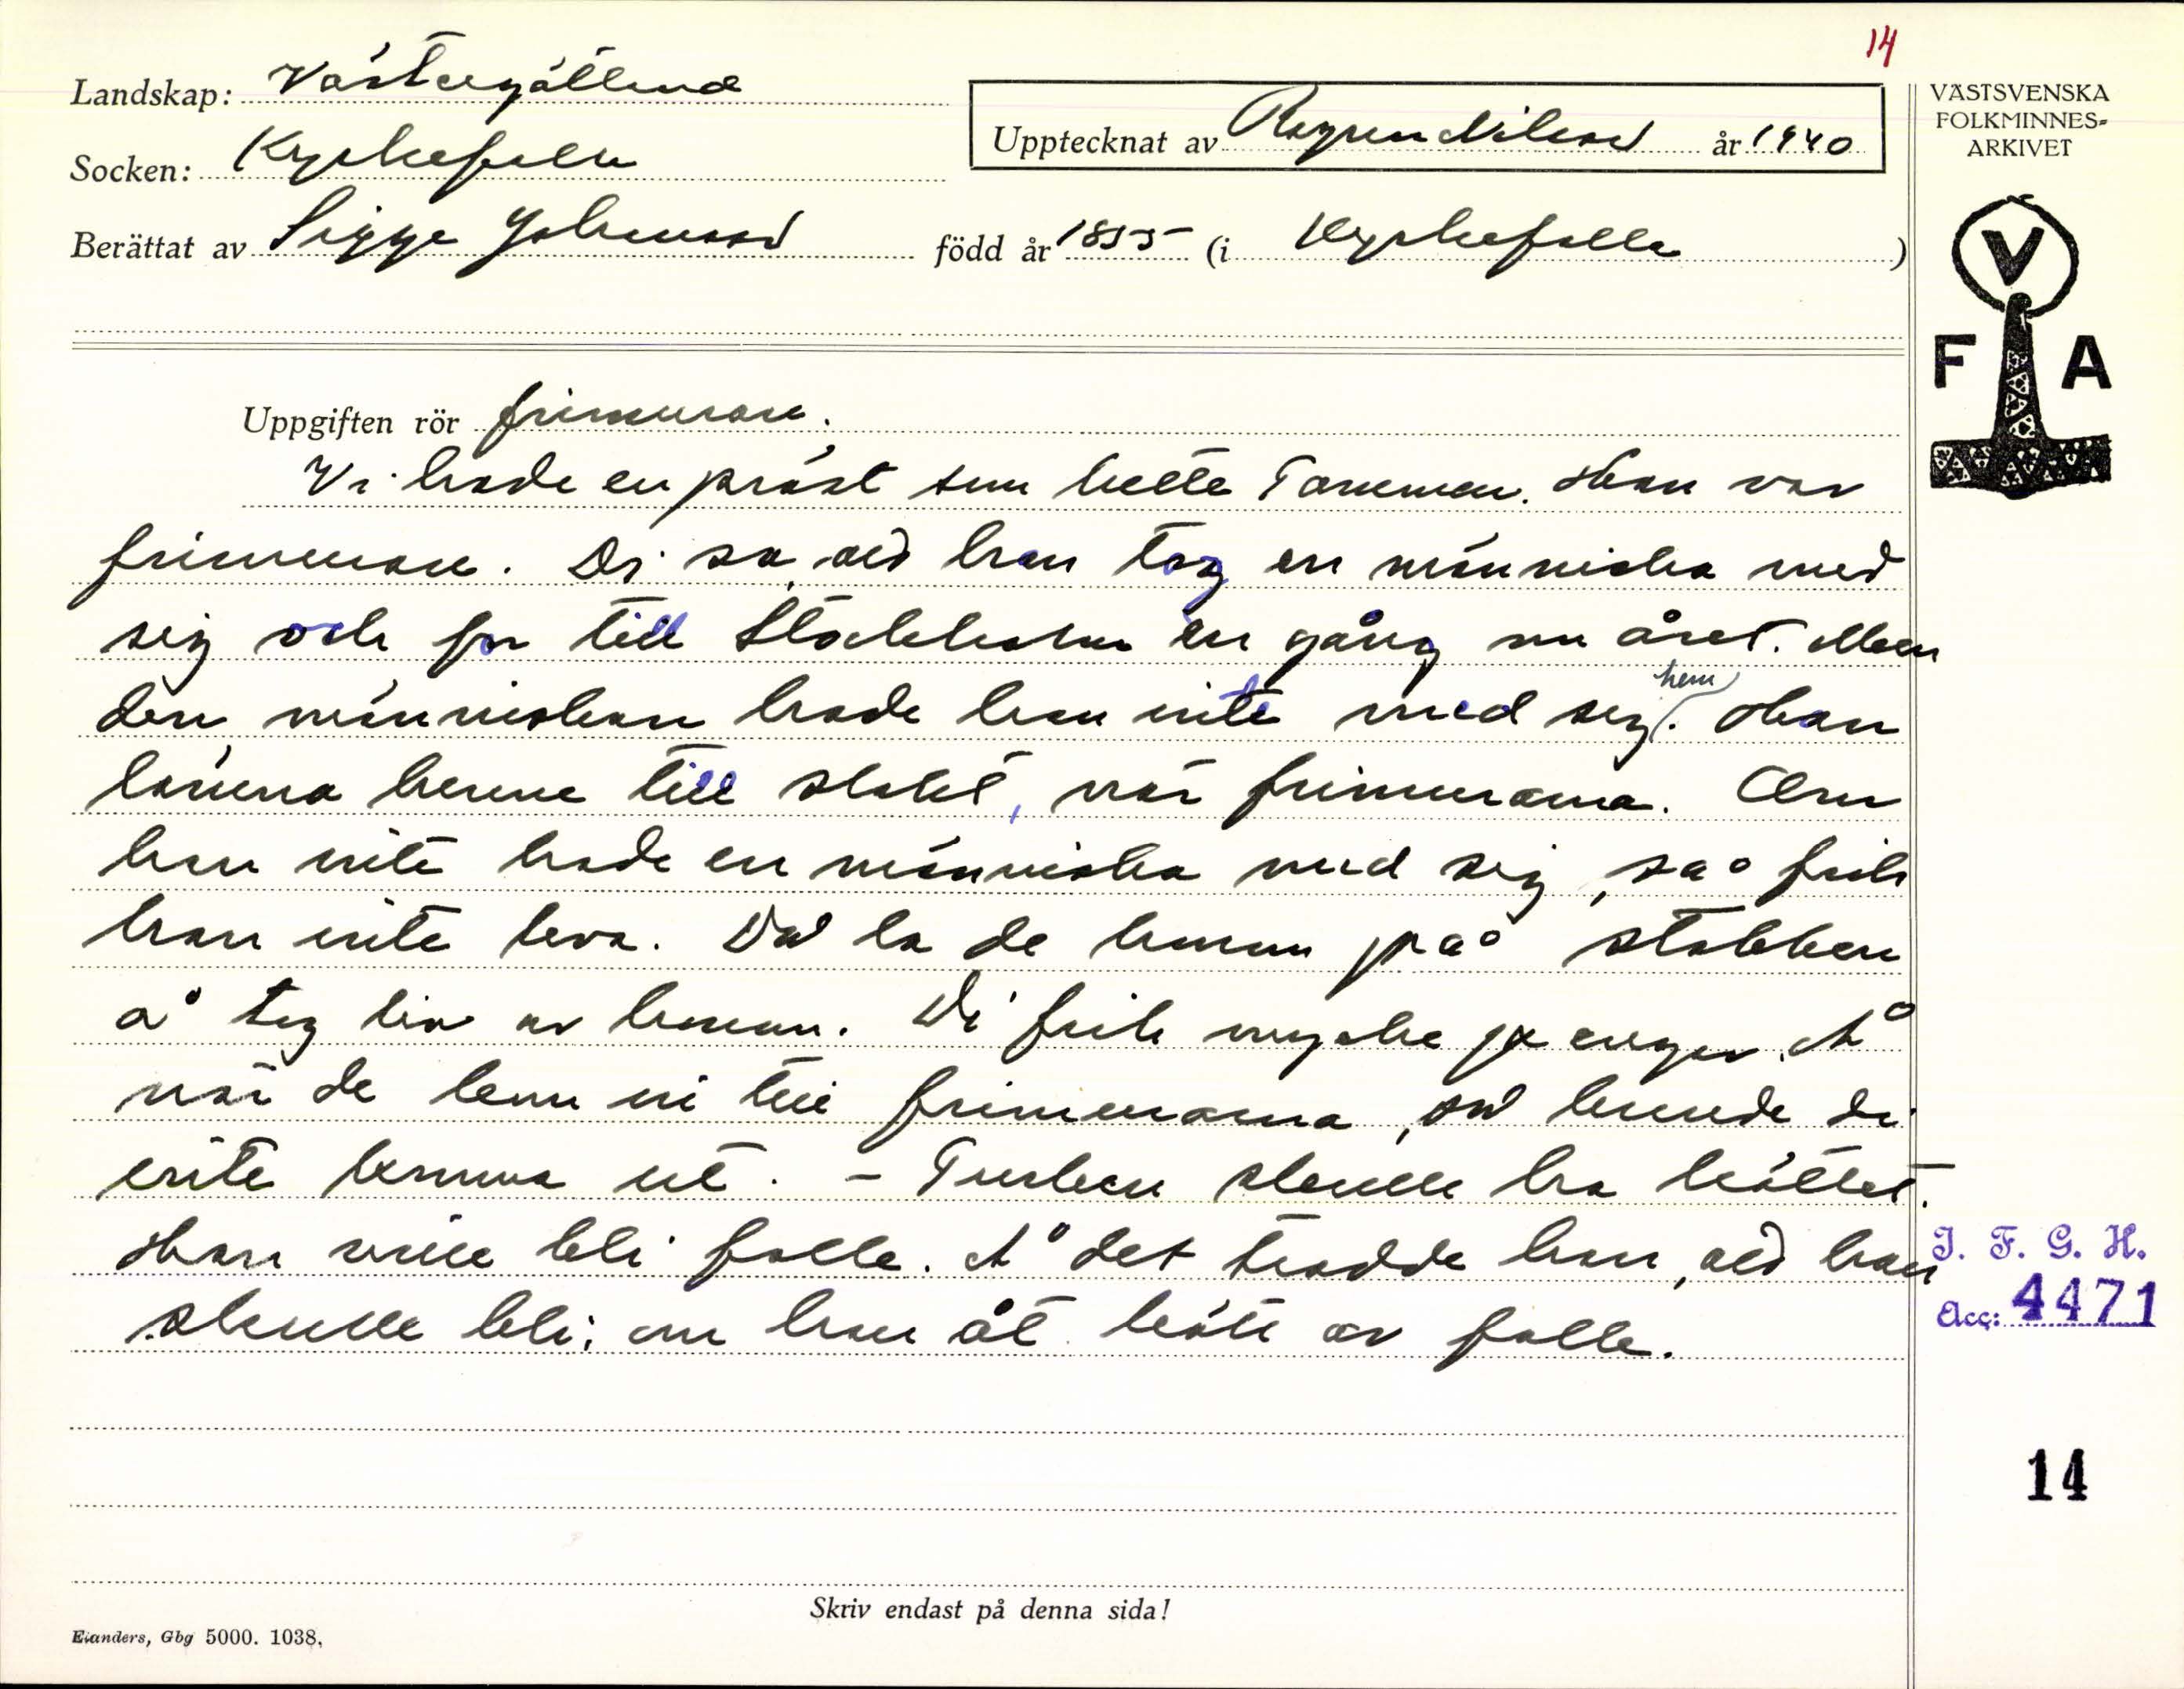 14
Landskap: Västergötland
Socken: Kyrkefalla
Upptecknat av Ragnar Nilsson år 1940
Berättat av Sigge Johansson född år 1855 (i Kyrkefalla)
VÄSTSVENSKA
FOLKMINNES-
ARKIVET
V
F A
Uppgiften rör frimurare.
Vi hade en präst som hette Tammen. Han var
frimurare. Di sa, att han tog en människa med
sig och for till Stockholm en gång om året. Men
den människan hade han inte med sig hem. Han
lämna henne till slakt, när frimurarna. Om
han inte hade en människa med sig, så fick
han inte leva. Då la de honom på stabben
å tog liv av honom. Di fick mycke penger. Å
när de kom in till frimurarna, så kunde di
inte komma ut. – Turken skulle ha köttet.
Han ville bli folk. Å det trodde han, att han
skulle bli, om han åt kött av folk.
I. F. G. H.
Acc: 4471
14
Skriv endast på denna sida!
Elanders, Gbg 5000. 1038.